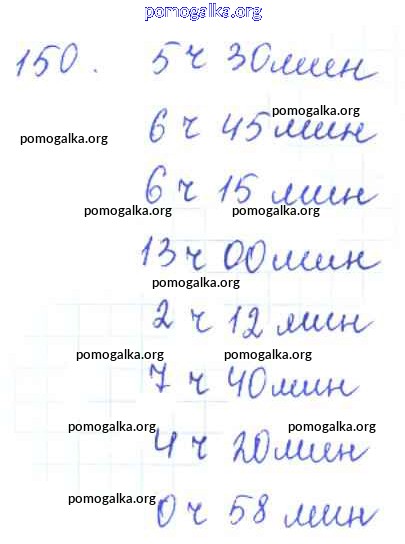 pomogalka.org
150. 5 ч 30 мин
pomogalka.org
6 ч 45 мин
pomogalka.org
6 ч 15 мин
pomogalka.org pomogalka.org
13 ч 00 мин
pomogalka.org
2 ч 12 мин
pomogalka.org pomogalka.org
7 ч 40 мин
pomogalka.org pomogalka.org
4 ч 20 мин
pomogalka.org
0 ч 58 мин
pomogalka.org